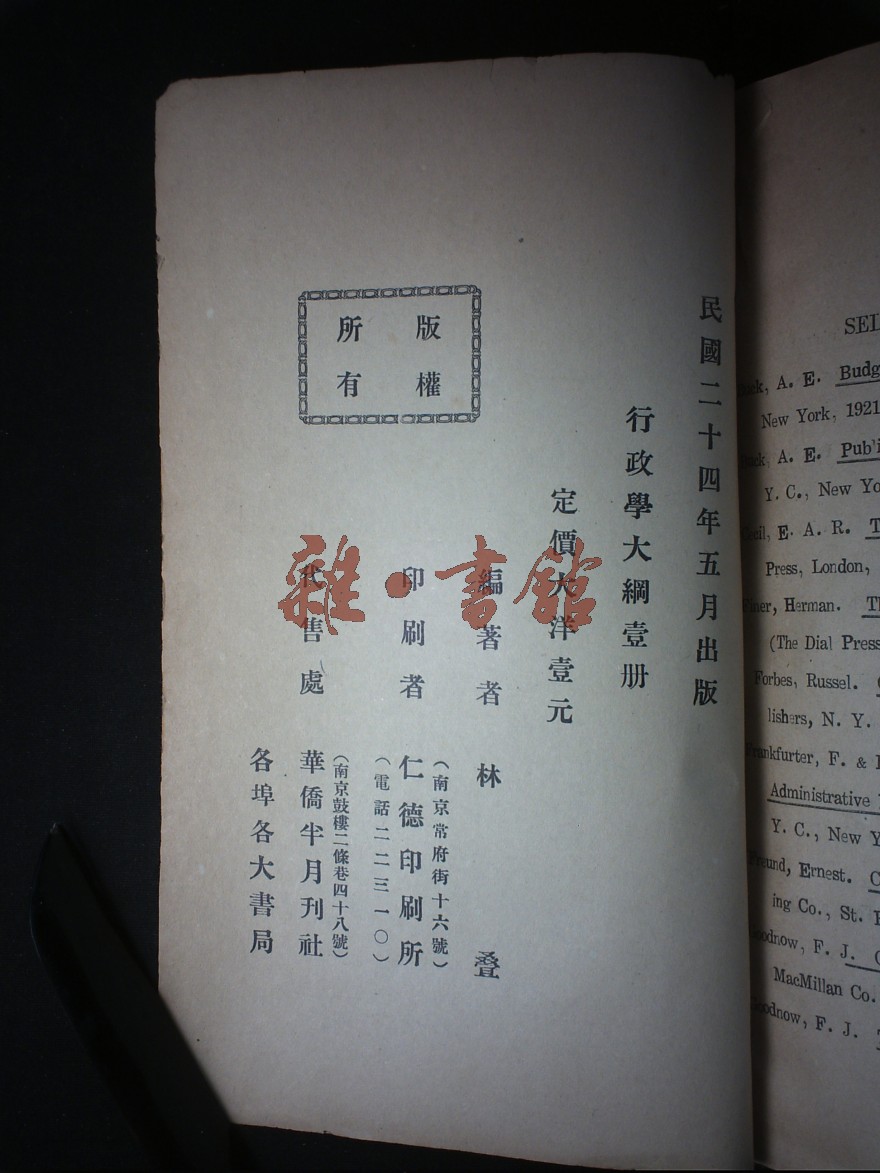 民國二十四年五月出版
行政學大綱壹册
定價大洋壹元
編著者 林 疊
印刷者 仁德印刷所
(南京常府街十六號)
(電話二二三一〇)
代售處 華僑半月刊社
(南京鼓樓二條巷四十八號)
各埠各大書局
版權
所有
雜·書館
A. E. Budg
New York, 1921
A. E. Pub'i
Y. C., New Yo
E. A. R. T
Press, London,
Herman. Th
(The Dial Press
Forbes, Russel.
lishers, N. Y.
Frankfurter, F. &
Administrative
Y. C., New Y
Ernest. C
ing Co., St. P
F. J.
MacMillan Co.
Goodnow, F. J.